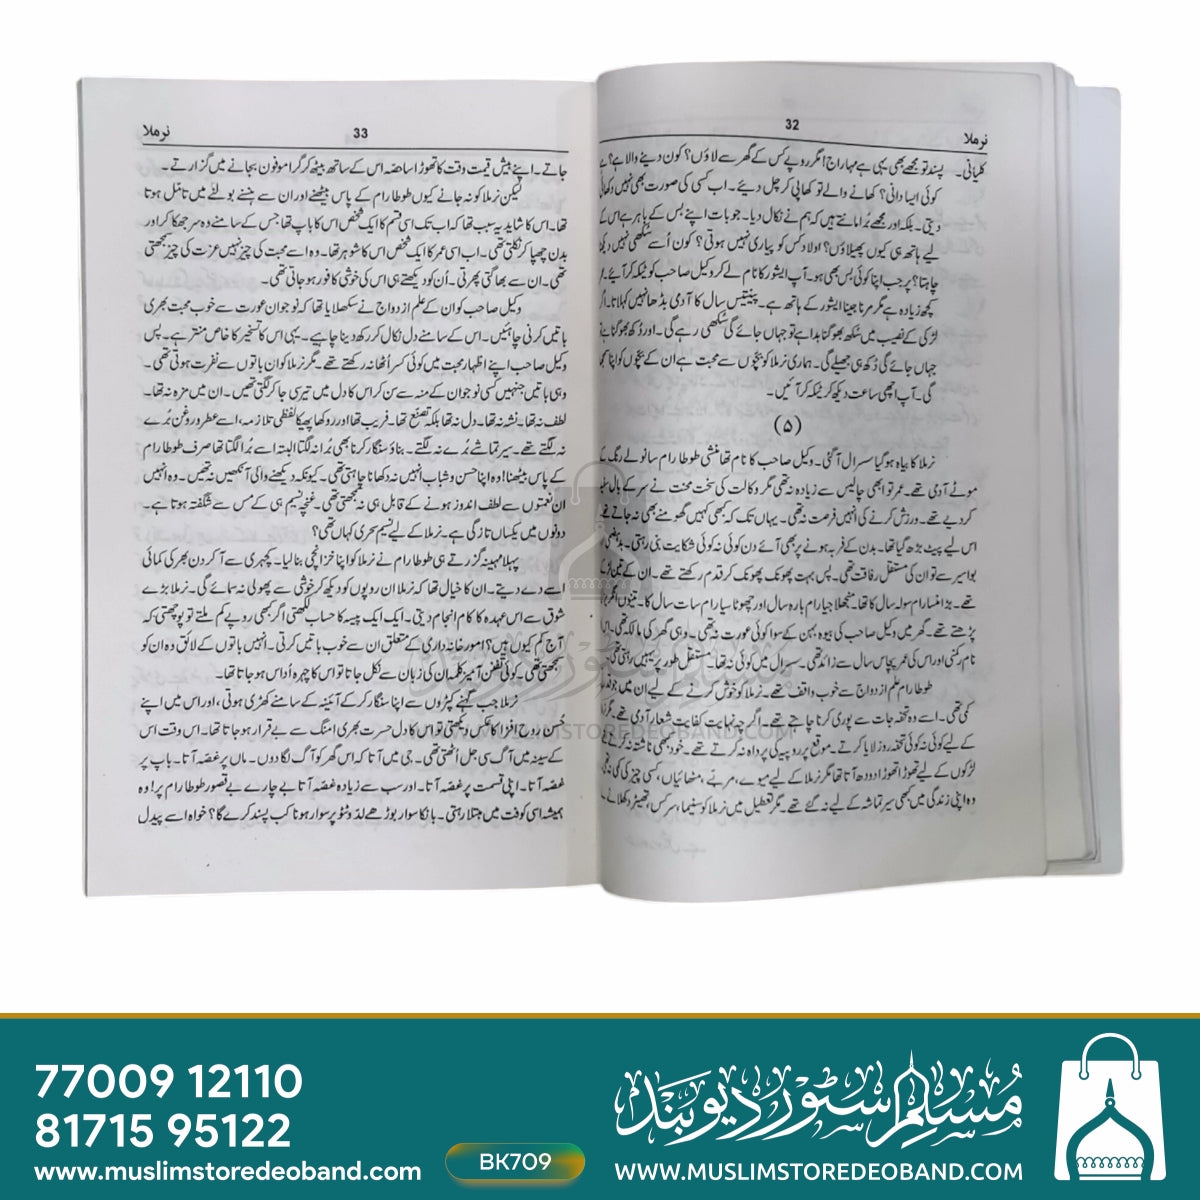 نرملا 32
کلیانی۔ پسند تو مجھے بھی یہی ہے مہاراج! مگر روپے کس کے گھر سے لاؤں؟ کون دینے والا ہے؟
کوئی ایسا دانی؟ کھانے والے تو کھا پی کر چل دیئے۔ اب کسی کی صورت بھی نہیں دکھائی
دیتی۔ بلکہ اور مجھے بُرا مانتے ہیں کہ ہم نے نکال دیا۔ جو بات اپنے بس کے باہر ہے اس کے
لیے ہاتھ ہی کیوں پھیلاؤں؟ اولاد کس کو پیاری نہیں ہوتی؟ کون اُسے سُکھی نہیں دیکھنا
چاہتا؟ پر جب اپنا کوئی بس بھی ہو۔ آپ ایشور کا نام لے کر وکیل صاحب کو ٹیکہ کر آئیے۔
کچھ زیادہ ہے مگر مرنا جینا ایشور کے ہاتھ ہے۔ پینتیس سال کا آدمی بڈھا نہیں کہلاتا۔ اگر
لڑکی کے نصیب میں سُکھ بھوگنا بدا ہے تو جہاں جائے گی سُکھی رہے گی۔ اور دُکھ بھوگنا ہے
جہاں جائے گی دُکھ ہی جھیلے گی۔ ہماری نرملا کو بچّوں سے محبت ہے ان کے بچّوں کو اپنا سمجھے
گی۔ آپ اچھی ساعت دیکھ کر ٹیکہ کر آئیں۔
(۵)
نرملا کا بیاہ ہو گیا سسرال آ گئی۔ وکیل صاحب کا نام تھا منشی طوطا رام سانولے رنگ کے
موٹے آدمی تھے۔ عمر تو ابھی چالیس سے زیادہ نہ تھی مگر وکالت کی سخت محنت نے سر کے بال سفید
کر دیے تھے۔ ورزش کرنے کی انہیں فرصت نہ تھی۔ یہاں تک کہ کبھی کہیں گھومنے بھی نہ جاتے تھے
اس لیے پیٹ بڑھ گیا تھا۔ بدن کے فربہ ہونے پر بھی آئے دن کوئی نہ کوئی شکایت بنی رہتی۔ بدہضمی
بواسیر سے تو ان کی مستقل رفاقت تھی۔ پس بہت پھونک پھونک کر قدم رکھتے تھے۔ ان کے تین لڑکے
تھے۔ بڑا منسا رام سولہ سال کا تھا۔ منجھلا جیا رام بارہ سال اور چھوٹا سیا رام سات سال کا۔ تینوں انگریزی
پڑھتے تھے۔ گھر میں وکیل صاحب کی بیوہ بہن کے سوا کوئی عورت نہ تھی۔ وہی گھر کی مالکہ تھی۔
نام رکمنی اور اس کی عمر پچاس سال سے زائد تھی۔ سسرال میں کوئی نہ تھا۔ مستقل طور پر یہیں رہتی تھی۔
طوطا رام علم ازدواج سے خوب واقف تھے۔ نرملا کو خوش کرنے کے لیے ان میں جو
کمی تھی۔ اسے وہ تحفہ جات سے پوری کرنا چاہتے تھے۔ اگر چہ نہایت کفایت شعار آدمی تھے۔
کے لیے کوئی نہ کوئی تحفہ روز لایا کرتے۔ موقع پر روپیہ کی پرواہ نہ کرتے تھے۔ خود بھی ناشتہ نہ کرتے
لڑکوں کے لیے تھوڑا تھوڑا دودھ آتا تھا مگر نرملا کے لیے میوے، مربے، مٹھائیاں، کسی چیز کی کمی نہ تھی
وہ اپنی زندگی میں کبھی سیر تماشہ کے لیے نہ گئے تھے۔ مگر تعطیل میں نرملا کو سنیما، سرکس، تھیٹر دکھلانے لے
نرملا 33
جاتے۔ اپنے بیش قیمت وقت کا تھوڑا سا حصہ اس کے ساتھ بیٹھ کر گراموفون بجانے میں گزارتے۔
لیکن نرملا کو نہ جانے کیوں طوطا رام کے پاس بیٹھنے اور ان سے ہنسنے بولنے میں تامّل ہوتا
تھا۔ اس کا شاید یہ سبب تھا کہ اب تک اسی قسم کا ایک شخص اس کا باپ تھا جس کے سامنے وہ سر جھکا کر اور
بدن چھپا کر نکلتی تھی۔ اب اسی عمر کا ایک شخص اس کا شوہر تھا۔ وہ اسے محبت کی چیز نہیں عزت کی چیز سمجھتی
تھی۔ ان سے بھاگتی پھرتی۔ اُن کو دیکھتے ہی اس کی خوشی کافور ہو جاتی تھی۔
وکیل صاحب کو ان کے علم ازدواج نے سکھلایا تھا کہ نوجوان عورت سے خوب محبت بھری
باتیں کرنی چاہئیں۔ اس کے سامنے دل نکال کر رکھ دینا چاہیے۔ یہی اس کا تسخیر کا خاص منتر ہے۔ پس
وکیل صاحب اپنے اظہار محبت میں کوئی کسر اُٹھا نہ رکھتے تھے۔ مگر نرملا کو ان باتوں سے نفرت ہوتی تھی۔
وہی باتیں جنہیں کسی نوجوان کے منہ سے سن کر اس کا دل میں تیر سی جا کر لگتی تھیں۔ ان میں مزہ نہ تھا۔
لطف نہ تھا۔ نشہ نہ تھا۔ دل نہ تھا بلکہ تصنع تھا۔ فریب تھا اور روکھا پھیکا لفظی تلازمہ، اسے عطر و روغن بُرے
نہ لگتے تھے۔ سیر تماشے بُرے نہ لگتے۔ بناؤ سنگار کرنا بھی بُرا نہ لگتا البتہ اسے بُرا لگتا تھا صرف طوطا رام
کے پاس بیٹھنا! وہ اپنا حسن و شباب انہیں نہ دکھانا چاہتی تھی۔ کیونکہ دیکھنے والی آنکھیں نہ تھیں۔ وہ انہیں
ان نعمتوں سے لطف اندوز ہونے کے قابل ہی نہ سمجھتی تھی۔ غنچہ نسیم ہی کے مس سے شگفتہ ہوتا ہے۔
دونوں میں یکساں تازگی ہے۔ نرملا کے لیے نسیم سحری کہاں تھی؟
پہلا مہینہ گزرتے ہی طوطا رام نے نرملا کو اپنا خزانچی بنا لیا۔ کچہری سے آ کر دن بھر کی کمائی
اسے دے دیتے۔ ان کا خیال تھا کہ نرملا ان روپوں کو دیکھ کر خوشی سے پھولی نہ سمائے گی۔ نرملا بڑے
شوق سے اس عہدہ کا کام انجام دیتی۔ ایک ایک پیسہ کا حساب لکھتی اگر کبھی روپے کم ملتے تو پوچھتی کہ
آج کم کیوں ہیں؟ امور خانہ داری کے متعلق ان سے خوب باتیں کرتی۔ انہیں باتوں کے لائق وہ ان کو
سمجھتی تھی۔ کوئی تفنن آمیز کلمہ ان کی زبان سے نکل جاتا تو اس کا چہرہ اُداس ہو جاتا تھا۔
نرملا جب گہنے کپڑوں سے اپنا سنگار کر کے آئینہ کے سامنے کھڑی ہوتی، اور اس میں اپنے
حُسن روح افزا کا عکس دیکھتی تو اس کا دل حسرت بھری امنگ سے بے قرار ہو جاتا تھا۔ اس وقت اس
کے سینہ میں آگ سی جل اُٹھتی تھی۔ جی میں آتا کہ اس گھر کو آگ لگا دوں۔ ماں پر غصّہ آتا۔ باپ پر
غصّہ آتا۔ اپنی قسمت پر غصّہ آتا۔ اور سب سے زیادہ غصّہ آتا بے چارے بے قصور طوطا رام پر! وہ
ہمیشہ اسی کوفت میں مبتلا رہتی۔ بانکا سوار بوڑھے لدّو ٹٹو پر سوار ہونا کب پسند کرے گا؟ خواہ اسے پیدل
مسلم سٹور دیوبند
WWW.MUSLIMSTOREDEOBAND.COM
77009 12110
81715 95122
www.muslimstoredeoband.com
BK709
مسلم سٹور دیوبند
WWW.MUSLIMSTOREDEOBAND.COM